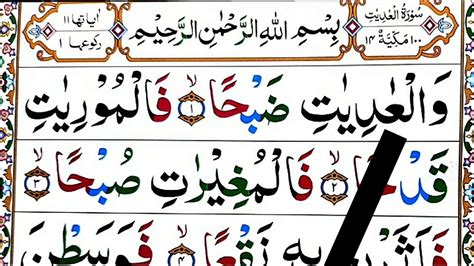 سُوْرَةُ الْعٰدِيٰتِ
١٠٠ مَكِّيَّةٌ ١٤
بِسْمِ اللّٰهِ الرَّحْمٰنِ الرَّحِيْمِ
اٰيَاتُهَا ١١
رُكُوْعُهَا ١
وَالْعٰدِيٰتِ ضَبْحًا ۙ﴿١﴾ فَالْمُوْرِيٰتِ
قَدْحًا ۙ﴿٢﴾ فَالْمُغِيْرٰتِ صُبْحًا ۙ﴿٣﴾
بِهٖ نَقْعًا ۙ﴿٤﴾ فَوَسَطْنَ